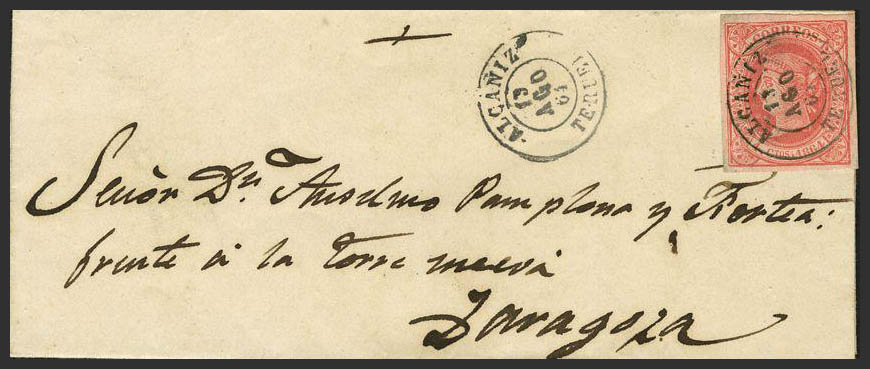 ALCAÑIZ
13
AGO
64
TERUEL
CORREOS
ALCAÑIZ
13
AGO
64
TERUEL
Señor Dn. Anselmo Pamplona y Fortea:
frente á la torre nueva
Zaragoza